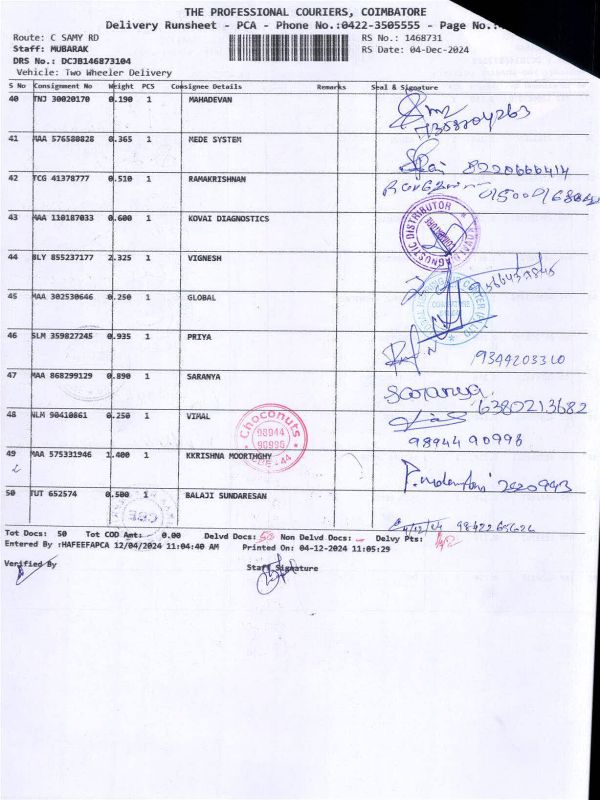 THE PROFESSIONAL COURIERS, COIMBATORE
Delivery Runsheet - PCA - Phone No.:0422-3505555 - Page No.:
Route: C SAMY RD RS No.: 1468731
Staff: MUBARAK RS Date: 04-Dec-2024
DRS No.: DCJB146873104
Vehicle: Two Wheeler Delivery
S No Consignment No Weight PCS Consignee Details Remarks Seal & Signature
40 TNJ 30020170 0.190 1 MAHADEVAN
7358204263
41 MAA 576580828 0.365 1 MEDE SYSTEM
8220666414
42 TCG 41378777 0.510 1 RAMAKRISHNAN
43 MAA 110187033 0.600 1 KOVAI DIAGNOSTICS
44 BLY 855237177 2.325 1 VIGNESH
45 MAA 302530646 0.250 1 GLOBAL
46 SLM 359827245 0.935 1 PRIYA
9344203310
47 MAA 868299129 0.890 1 SARANYA
Saranya
6380213682
48 NLM 90410861 0.250 1 VIMAL
Choconuts
98944
90996
CBE - 44
98944 90996
49 MAA 575331946 1.400 1 KKRISHNA MOORTHGHY
50 TUT 652574 0.500 1 BALAJI SUNDARESAN
4/12/24 98422 65626
Tot Docs: 50 Tot COD Amt: 0.00 Delvd Docs: 50 Non Delvd Docs: - Delvy Pts:
Entered By :HAFEEFAPCA 12/04/2024 11:04:40 AM Printed On: 04-12-2024 11:05:29
Verified By Staff Signature